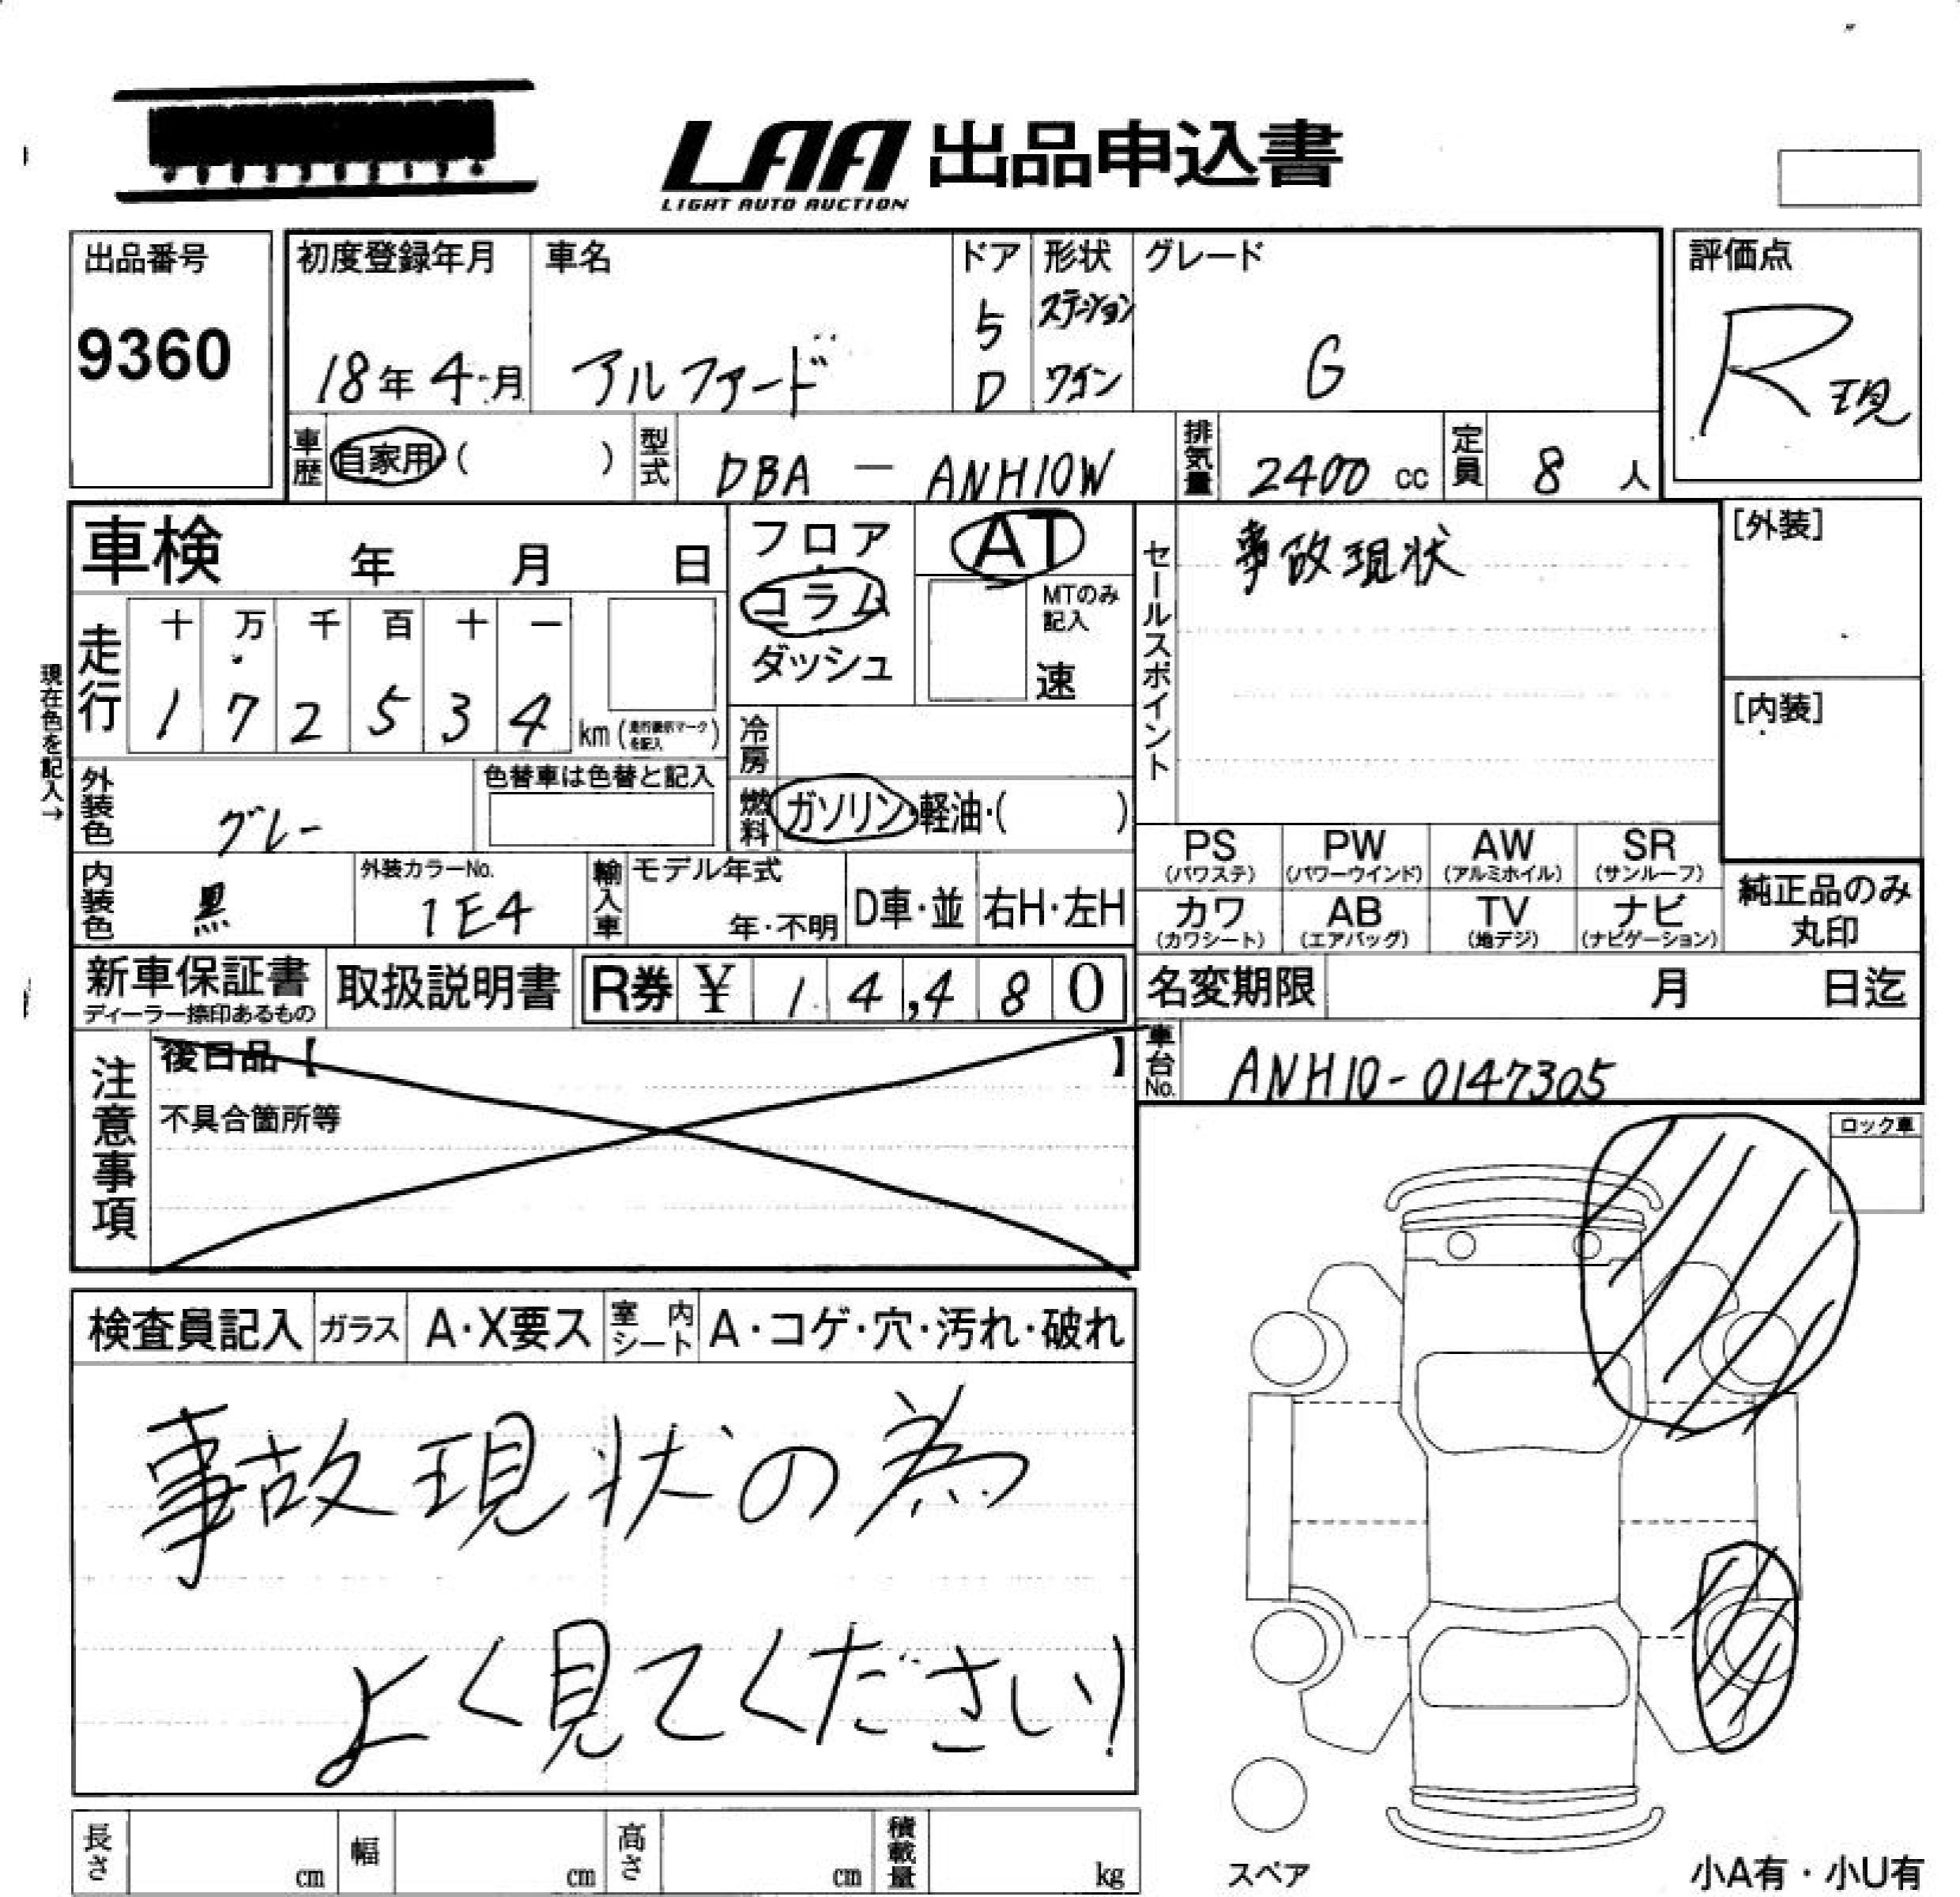 LAA 出品申込書
LIGHT AUTO AUCTION
出品番号
9360
初度登録年月
18年 4月
車名
アルファード
ドア
5
D
形状
ステーション
ワゴン
グレード
G
評価点
R 現
車歴 自家用 ( )
型式 DBA - ANH10W
排気量 2400 cc
定員 8 人
車検 年 月 日
走行 十 万 千 百 十 一
1 7 2 5 3 4 km (走行表示マークを記入)
現在色を記入→
フロア
コラム
ダッシュ
AT
MTのみ
記入
速
冷房
燃料 ガソリン・軽油・( )
セールスポイント
事故現状
[外装]
[内装]
外装色 グレー
色替車は色替と記入
内装色 黒
外装カラーNo.
1E4
輸入車 モデル年式
年・不明
D車・並 右H・左H
PS (パワステ) PW (パワーウインド) AW (アルミホイル) SR (サンルーフ)
カワ (カワシート) AB (エアバッグ) TV (地デジ) ナビ (ナビゲーション)
純正品のみ
丸印
新車保証書
ディーラー捺印あるもの
取扱説明書
R券 ¥ 14,480
名変期限 月 日迄
車台No. ANH10-0147305
注意事項
後日品【 】
不具合箇所等
ロック車
検査員記入 ガラス A・X要ス 室内シート A・コゲ・穴・汚れ・破れ
事故現状の為
よく見てください!
長さ cm 幅 cm 高さ cm 積載量 kg
スペア
小A有・小U有